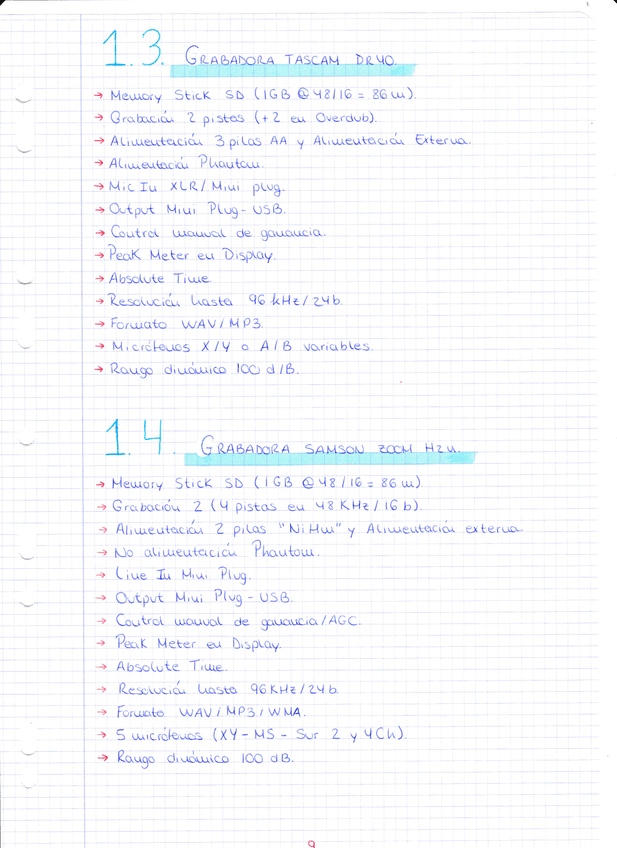 1.3. GRABADORA TASCAM DR40.
→ Memory Stick SD (1GB @ 48/16 = 86m).
→ Grabación 2 pistas (+2 en Overdub).
→ Alimentación 3 pilas AA y Alimentación Externa.
→ Alimentación Phantom.
→ Mic In XLR/Mini plug.
→ Output Mini Plug-USB.
→ Control manual de ganancia.
→ Peak Meter en Display.
→ Absolute Time
→ Resolución hasta 96 kHz/24b.
→ Formato WAV/MP3.
→ Micrófonos X/Y o A/B variables.
→ Rango dinámico 100 d/B.
1.4. GRABADORA SAMSON ZOOM H2n.
→ Memory Stick SD (1GB @ 48/16 = 86m)
→ Grabación 2 (4 pistas en 48 KHz/16b).
→ Alimentación 2 pilas "NiHm" y Alimentación externa
→ No alimentación Phantom.
→ Line In Mini Plug.
→ Output Mini Plug-USB.
→ Control manual de ganancia/AGC.
→ Peak Meter en Display.
→ Absolute Time.
→ Resolución hasta 96KHz/24b
→ Formato WAV/MP3/WMA.
→ 5 micrófonos (XY-MS-Sur 2 y 4Ch).
→ Rango dinámico 100 dB.
9